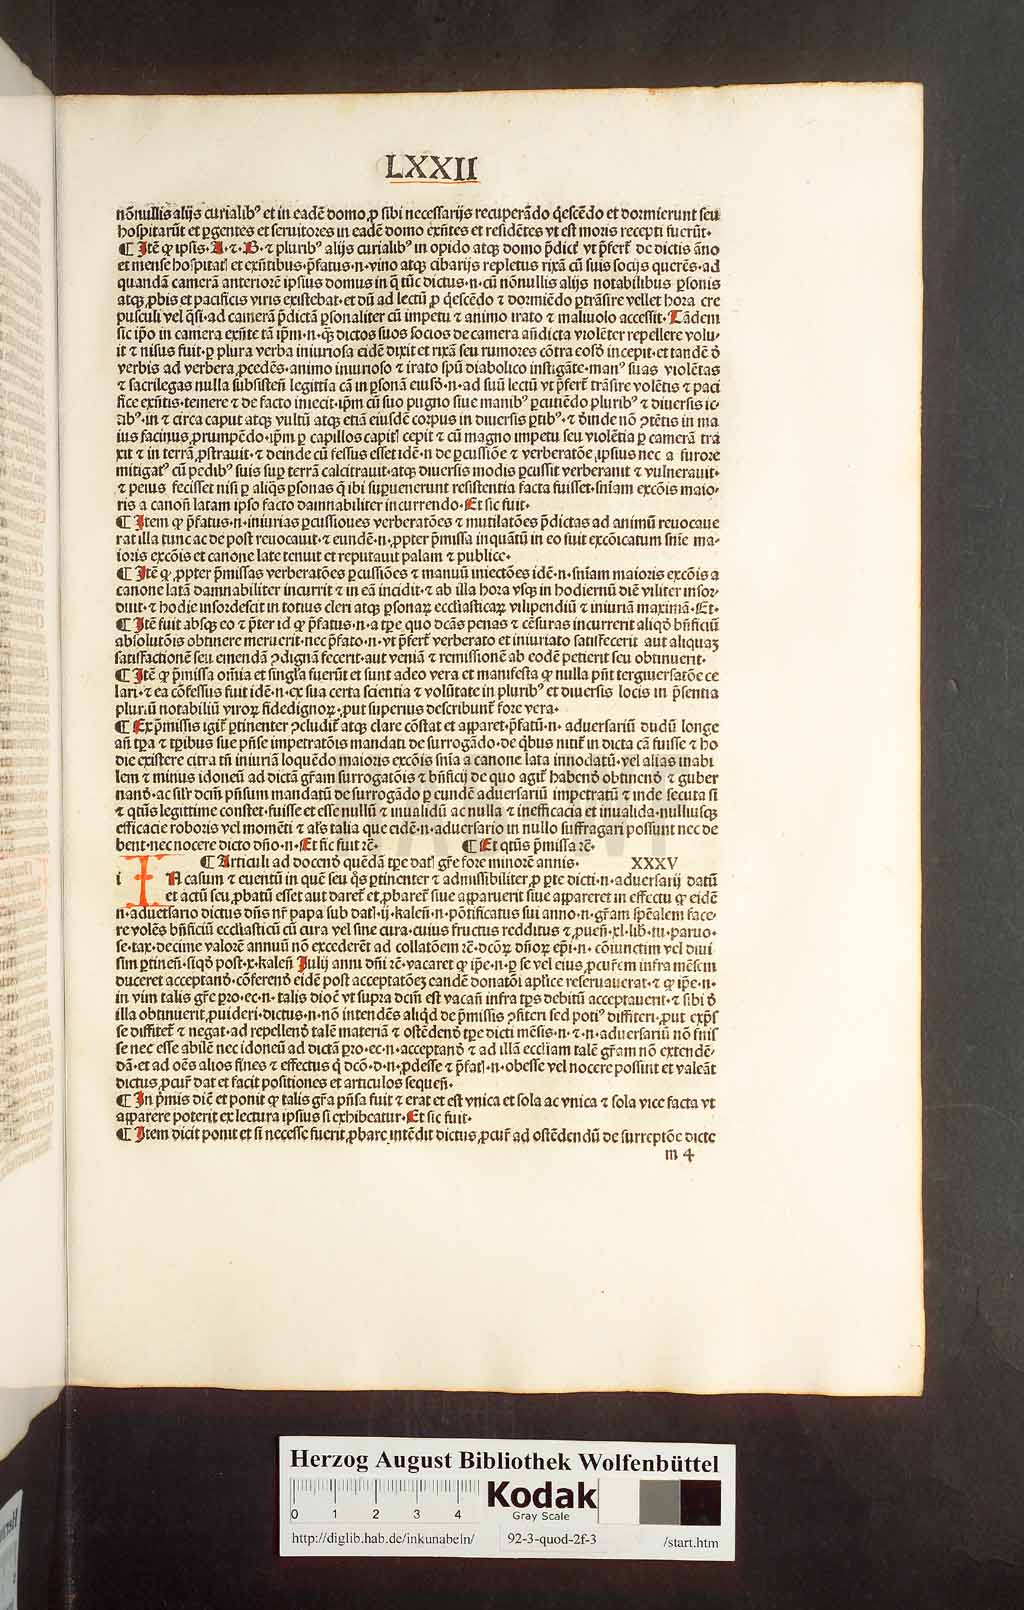 LXXII
nōnullis alijs curialibꝰ et in eadē domo ꝓ sibi necessarijs recuperādo q̄escēdo et dormierunt seu
hospitarūt et ꝑgentes et seruitores in eadē domo exn̄tes et residētes vt est moris recepti fuerūt·
¶ Itē ꝙ ipsis·A·⁊·B·⁊ pluribꝰ alijs curialibꝰ in opido atqꝫ domo p̄dict̄ vt p̄fert̄ de dictis āno
et mense hospitatꝭ et exn̄tibus·p̄fatus·n·vino atqꝫ cibarijs repletus rixā cū suis socijs querēs·ad
quandā camerā anteriorē ipsius domus in q̄ tūc dictus·n·cū nōnullis alijs notabilibus ꝑsonis
atqꝫ ꝓbis et pacificis viris existebat·et dū ad lectū ꝓ q̄escēdo ⁊ dormiēdo ꝑtrāsire vellet hora cre
pusculi vel q̄si·ad camerā p̄dictā ꝑsonaliter cū impetu ⁊ animo irato ⁊ maliuolo accessit·Tādem
sic ip̄o in camera exn̄te tā ip̄m·n·qꝫ̄ dictos suos socios de camera an̄dicta violēter repellere volu-
it ⁊ nisus fuit·ꝑ plura verba iniuriosa eidē dixit et rixā seu rumores cōtra eosd̄ incepit·et tandē d̄
verbis ad verbera ꝓcedēs·animo iniurioso ⁊ irato spū diabolico instigāte·manꝰ suas violētas
⁊ sacrilegas nulla subsisten̄ legittīa cā in ꝑsonā eiusd̄·n·ad suū lectū vt p̄fert̄ trāsire volētis ⁊ paci
fice exn̄tis·temere ⁊ de facto iniecit·ip̄m cū suo pugno siue manibꝰ ꝑcutiēdo pluribꝰ ⁊ diuersis ic-
tibꝰ·in ⁊ circa caput atqꝫ vultū atqꝫ etiā eiusdē corpus in diuersis ꝑtibꝰ·⁊ d̄inde nō ꝯtētis in ma
ius facinus ꝓrumpēdo·ip̄m ꝑ capillos capitꝭ cepit ⁊ cū magno impetu seu violētia ꝑ camerā tra
xit ⁊ in terrā ꝓstrauit·⁊ deinde cū fessus esset idē·n·de ꝑcussiōe ⁊ verberatōe ipsius nec a furore
mitigatꝰ cū pedibꝰ suis suꝑ terrā calcitrauit·atqꝫ diuersis modis ꝑcussit verberauit ⁊ vulnerauit·
⁊ peius fecisset nisi ꝑ aliq̄s ꝑsonas q̄ ibi suꝑuenerunt resistentia facta fuisset·sn̄iam excōis maio-
ris a canon̄ latam ipso facto damnabiliter incurrendo·Et sic fuit·
¶ Item ꝙ p̄fatus·n·iniurias ꝑcussiones verberatōes ⁊ mutilatōes p̄dictas ad animū reuocaue
rat illa tunc ac de post reuocauit·⁊ eundē·n·ꝓpter p̄missa inquātū in eo fuit excōicatum sn̄ie ma-
ioris excōis et canone late tenuit et reputauit palam ⁊ publice·
¶ Itē ꝙ ꝓpter p̄missas verberatōes ꝑcussiōes ⁊ manuū iniectōes idē·n·sn̄iam maioris excōis a
canone latā damnabiliter incurrit ⁊ in eā incidit·⁊ ab illa hora vsqꝫ in hodiernū diē viliter insor-
duit·⁊ hodie insordescit in totius cleri atqꝫ ꝑsonaꝝ eccl̄iasticaꝝ vilipendiū ⁊ iniuriā maximā·Et·
¶ Itē fuit absqꝫ eo ⁊ p̄ter id ꝙ p̄fatus·n·a tꝑe quo dc̄as penas ⁊ cēsuras incurrerit aliqd̄ bn̄ficiū
absolutōis obtinere meruerit·nec p̄fato·n·vt p̄fert̄ verberato et iniuriato satisfecerit aut aliquaꝫ
satisfactionē seu emendā ꝯdignā fecerit·aut veniā ⁊ remissionē ab eodē petierit seu obtinuerit·
¶ Itē ꝙ p̄missa om̄ia et singl̄a fuerūt et sunt adeo vera et manifesta ꝙ nulla p̄nt tergiuersatōe ce
lari·⁊ ea cōfessus fuit idē·n·ex sua certa scientia ⁊ volūtate in pluribꝰ et diuersis locis in p̄sentia
pluriū notabiliū viroꝝ fidedignoꝝ·ꝓut superius describunt̄ fore vera·
¶ Ex p̄missis igit̄ ꝑtinenter ꝯcludit̄ atqꝫ clare cōstat et apparet·p̄fatū·n· aduersariū dudū longe
an̄ tꝑa ⁊ tꝑibus sue p̄n̄se impetratōis mandati de surrogādo·de q̄bus nitit̄ in dicta cā fuisse ⁊ ho
die existere citra tn̄ iniuriā loquēdo maioris excōis sn̄ia a canone lata innodatū·vel alias inabi
lem ⁊ minus idoneū ad dictā gr̄am surrogatōis ⁊ bn̄ficij de quo agit̄ habend̄ obtinend̄ ⁊ guber
nand̄·ac sil̄r dc̄m p̄n̄sum mandatū de surrogādo ꝑ eundē aduersariū impetratū ⁊ inde secuta si
⁊ qtūs legittime constet·fuisse et esse nullū ⁊ inualidū ac nulla ⁊ inefficacia et inualida·nulliusqꝫ
efficacie roboris vel momēti ⁊ al̄s talia que eidē·n·aduersario in nullo suffragari possunt nec de
bent·nec nocere dicto dn̄o·n·Et sic fuit rē· ¶ Et qtūs p̄missa rē·
¶ Articuli ad docend̄ quēdā tꝑe datꝭ gr̄e fore minorē annis· XXXV
i IN casum ⁊ euentū in quē seu q̄s ꝑtinenter ⁊ admissibiliter ꝓ ꝑte dicti·n·aduersarij datū
et actū seu ꝓbatū esset aut daret̄ et ꝓbaret̄ siue apparuerit siue appareret in effectu ꝙ eidē
n·aduersario dictus dn̄s nr̄ papa sub datꝭ·ij·kalen̄·n·pōtificatus sui anno·n·gr̄am sp̄ēalem face-
re volēs bn̄ficiū eccl̄iasticū cū cura vel sine cura·cuius fructus redditus ⁊ ꝓuen̄·xl·lib̄·tu·paruo-
se·tax·decime valorē annuū nō excederēt ad collatōem rē·dc̄oꝝ dn̄oꝝ ep̄i·n· cōiunctim vel diui
sim ꝑtinen̄·siqd̄ post·x·kalen̄ Julij anni dn̄i rē·vacaret ꝙ ip̄e·n·ꝑ se vel eius ꝓcur̄em infra mēsem
duceret acceptand̄·cōferend̄ eidē post acceptatōeꝫ eandē donatōi aplīce reseruauerat·⁊ ꝙ ip̄e·n·
in vim talis gr̄e pro·ec·n· talis dioc̄ vt supra dc̄m est vacan̄ infra tp̄s debitū acceptauerit·⁊ sibi d̄
illa obtinuerit ꝓuideri·dictus·n·nō intendēs aliqd̄ de p̄missis ꝯfiteri sed potiꝰ diffiteri·ꝓut exp̄s
se diffitet̄ ⁊ negat·ad repellend̄ talē materiā ⁊ ostēdend̄ tꝑe dicti mēsis·n·⁊·n·aduersariū nō fuis
se nec esse abilē nec idoneū ad dictā pro·ec·n·acceptand̄ ⁊ ad illā eccl̄iam talē gr̄am nō extendē-
dā·et ad oēs alios fines ⁊ effectus q̄ dc̄o·d·n·ꝓdesse ⁊ p̄fatꝭ·n·obesse vel nocere possint et valeāt
dictus ꝓcur̄ dat et facit positiones et articulos sequen̄·
¶ In p̄mis dicē et ponit ꝙ talis gr̄a p̄n̄sa fuit ⁊ erat et est vnica et sola ac vnica ⁊ sola vice facta vt
apparere poterit ex lectura ipsius si exhibeatur·Et sic fuit·
¶ Item dicit ponit et si necesse fuerit ꝓbare intēdit dictus ꝓcur̄ ad ostēdendū de surreptōe dicte
m 4
Herzog August Bibliothek Wolfenbüttel
0 1 2 3 4
Kodak
Gray Scale
http://diglib.hab.de/inkunabeln/ 92-3-quod-2f-3 /start.htm